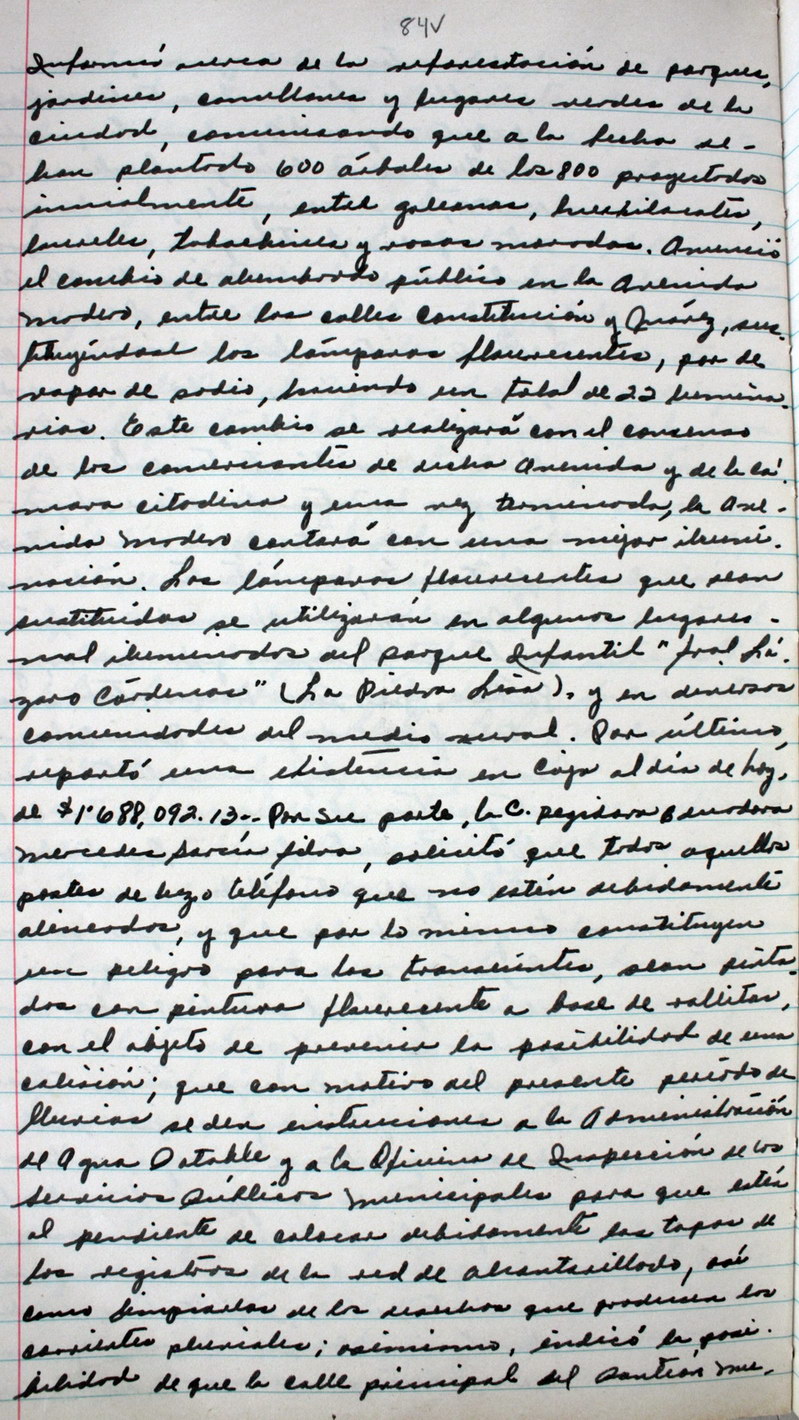 84V
Informó acerca de la reforestación de parques,
jardines, camellones y lugares verdes de la
ciudad, comunicando que a la fecha se-
han plantado 600 árboles de los 800 proyectados
inicialmente, entre galeanas, huehilacates,
laureles, tabachines y rosas moradas. Anunció
el cambio de alumbrado público en la Avenida
Madero, entre las calles Constitución y Juárez, sus-
tituyéndose las lámparas fluorescentes, por de
vapor de sodio, haciendo un total de 22 lumina-
rias. Este cambio se realizará con el consenso
de los comerciantes de dicha Avenida y de la Cá-
mara citadina y una vez terminada, la Ave-
nida Madero contará con una mejor ilumi-
nación. Las lámparas fluorescentes que sean
sustituidas se utilizarán en algunos lugares-
mal iluminados del parque Infantil "Gral. Lá-
zaro Cárdenas" (La Piedra Lisa), y en diversas
comunidades del medio rural. Por último,
reportó una existencia en Caja al día de hoy,
de $1'688,092.13-. Por su parte, la C. Regidora Benodora
Mercedes García Silva, solicitó que todos aquellos
postes de luz o teléfono que no estén debidamente
alineados, y que por lo mismo constituyen
un peligro para los transeúntes, sean pinta-
dos con pintura fluorescente a base de rallitas,
con el objeto de prevenir la posibilidad de una
colisión; que con motivo del presente período de
lluvias se den instrucciones a la Administración
de Agua Potable y a la Oficina de Inspección de los
Servicios Públicos Municipales para que estén
al pendiente de colocar debidamente las tapas de
los registros de la red de alcantarillado, así
como limpiarlas de los desechos que producen las
corrientes pluviales; asimismo, indicó la posi-
bilidad de que la calle principal del Panteón Mu-